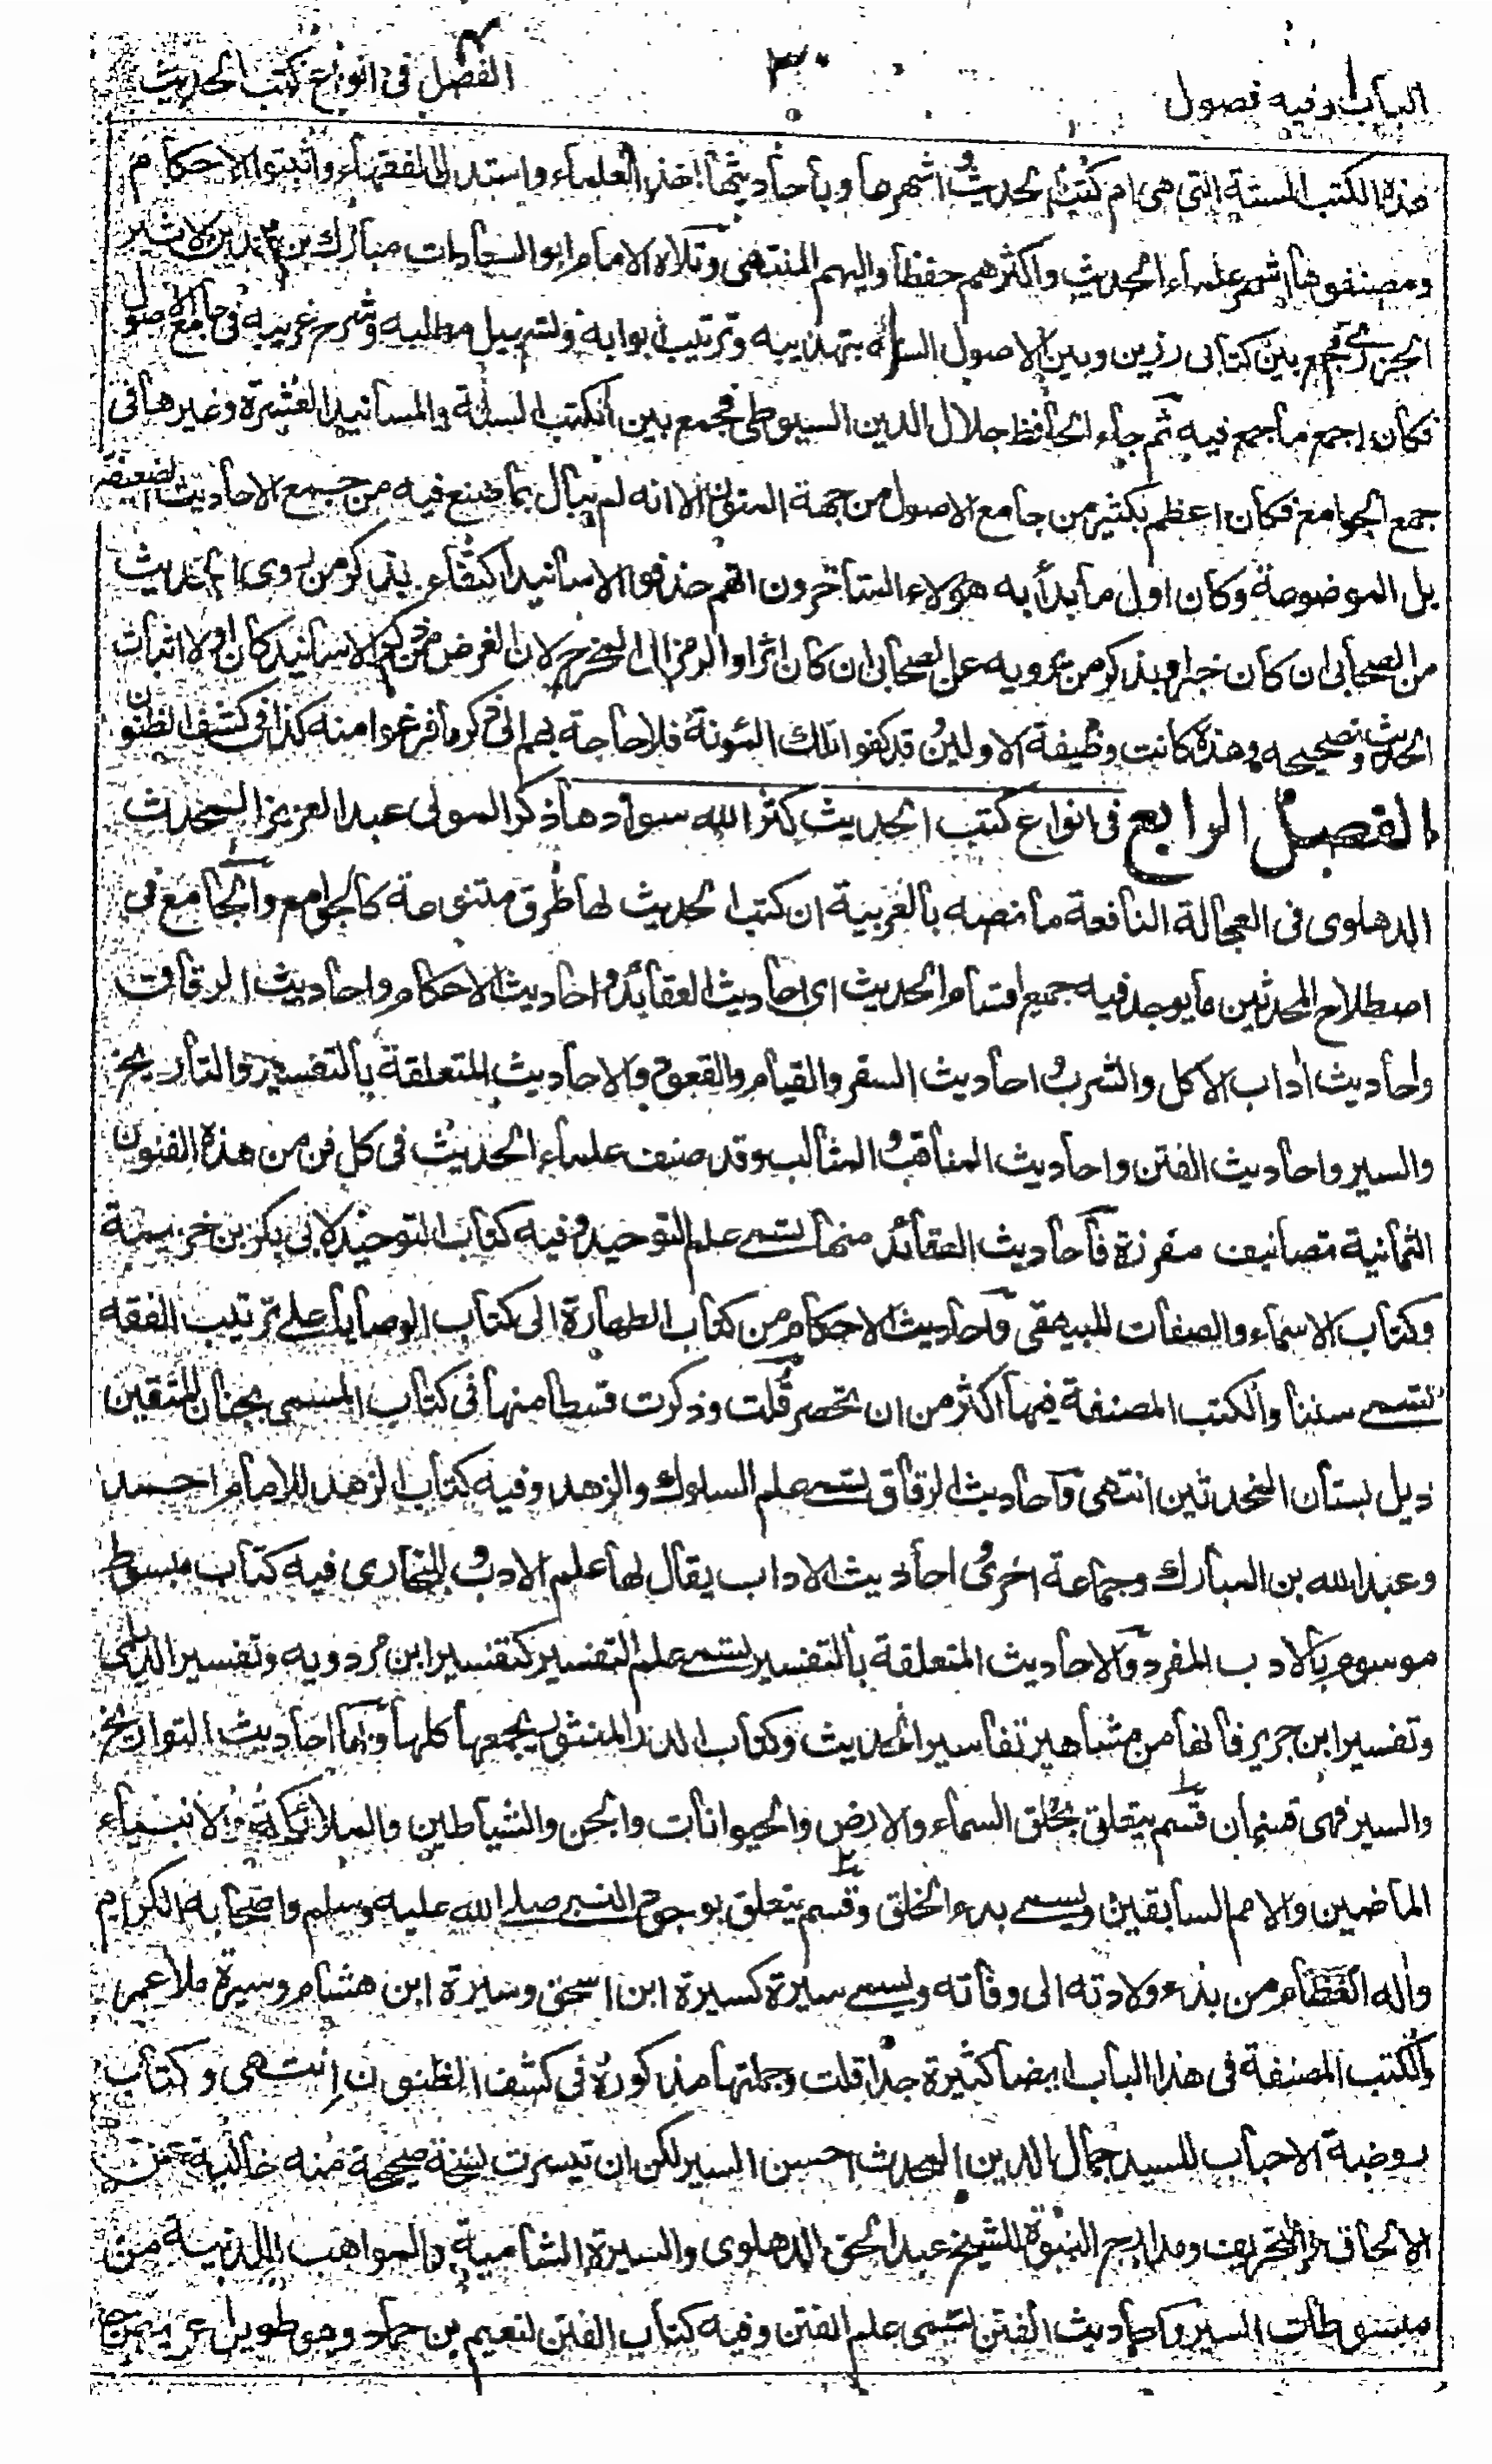 الباب ٢ وفيه فصول
٣٠
الفصل ٤ فى انواع كتب الحديث
هذه الكتب الستة التى هى ام كتب الحديث اشهرها وباحاديثها اخذ العلماء واستدل الفقهاء واثبتوا الاحكام
ومصنفوها اشهر علماء الحديث واكثرهم حفظا واليهم المنتهى وتلاه الامام ابو السعادات مبارك بن محمد بن الاثير
الجزرى فجمع بين كتابى رزين وبين الاصول الستة بتهذيبه وترتيب ابوابه وتسهيل مطلبه وشرح غريبه فى جامع الاصول
فكان اجمع ما جمع فيه ثم جاء الحافظ جلال الدين السيوطى فجمع بين الكتب الستة والمسانيد العشرة وغيرها فى
جمع الجوامع فكان اعظم بكثير من جامع الاصول من جهة المتون الا انه لم يبال بما صنع فيه من جمع الاحاديث الضعيفة
بل الموضوعة وكان اول ما بدأ به هؤلاء المتأخرون انهم حذفوا الاسانيد اكتفاء بذكر من روى الحديث
من الصحابى ان كان خبرا وبذكر من يرويه عن الصحابى ان كان اثرا والرمز الى المخرج لان الغرض من ذكر الاسانيد كان اولا اثبات
الحديث وتصحيحه وهذه كانت وظيفة الاولين وقد كفوا تلك المئونة فلا حاجة بهم الى ذكر ما فرغوا منه كذا فى كشف الظنون
الفصل الرابع فى انواع كتب الحديث كثر الله سوادها ذكر المولى عبد العزيز المحدث
الدهلوى فى العجالة النافعة ما نصه بالعربية ان كتب الحديث لها طرق متنوعة كالجوامع والجامع فى
اصطلاح المحدثين ما يوجد فيه جميع اقسام الحديث اى احاديث العقائد واحاديث الاحكام واحاديث الرقاق
واحاديث اداب الاكل والشرب واحاديث السفر والقيام والقعود والاحاديث المتعلقة بالتفسير والتاريخ
والسير واحاديث الفتن واحاديث المناقب والمثالب وقد صنف علماء الحديث فى كل فن من هذه الفنون
الثمانية تصانيف مفرزة فاحاديث العقائد منها تسمى علم التوحيد وفيه كتاب التوحيد لابى بكر بن خزيمة
وكتاب الاسماء والصفات للبيهقى واحاديث الاحكام من كتاب الطهارة الى كتاب الوصايا على ترتيب الفقه
تسمى سننا والكتب المصنفة فيها اكثر من ان تحصر قلت وذكرت قسطا منها فى كتاب المسمى بجنان المتقين
ذيل بستان المحدثين انتهى واحاديث الرقاق تسمى علم السلوك والزهد وفيه كتاب الزهد للامام احمد
وعبد الله بن المبارك وجماعة اخرى واحاديث الاداب يقال لها علم الادب وللبخارى فيه كتاب مبسوط
موسوم بالادب المفرد والاحاديث المتعلقة بالتفسير تسمى علم التفسير كتفسير ابن مردويه وتفسير الديلمى
وتفسير ابن جرير فانها من مشاهير تفاسير الحديث وكتاب الدر المنثور يجمعها كلها واما احاديث التواريخ
والسير فهى قسمان قسم يتعلق بخلق السماء والارض والحيوانات والجن والشياطين والملائكة والانبياء
الماضين والامم السابقين ويسمى بدء الخلق وقسم يتعلق بوجود النبى صلى الله عليه وسلم واصحابه الكرام
واله العظام من بدء ولادته الى وفاته ويسمى سيرة كسيرة ابن اسحق وسيرة ابن هشام وسيرة ملا عمر
والكتب المصنفة فى هذا الباب ايضا كثيرة جدا قلت وجملتها مذكورة فى كشف الظنون انتهى وكتاب
روضة الاحباب للسيد جمال الدين المحدث احسن السير لكن ان تيسرت نسخة صحيحة منه خالية عن
الالحاق والتحريف ومدارج النبوة للشيخ عبد الحق الدهلوى والسيرة الشامية والمواهب اللدنية من
مبسوطات السير واحاديث الفتن تسمى علم الفتن وفيه كتاب الفتن لنعيم بن حماد وهو طويل عريض